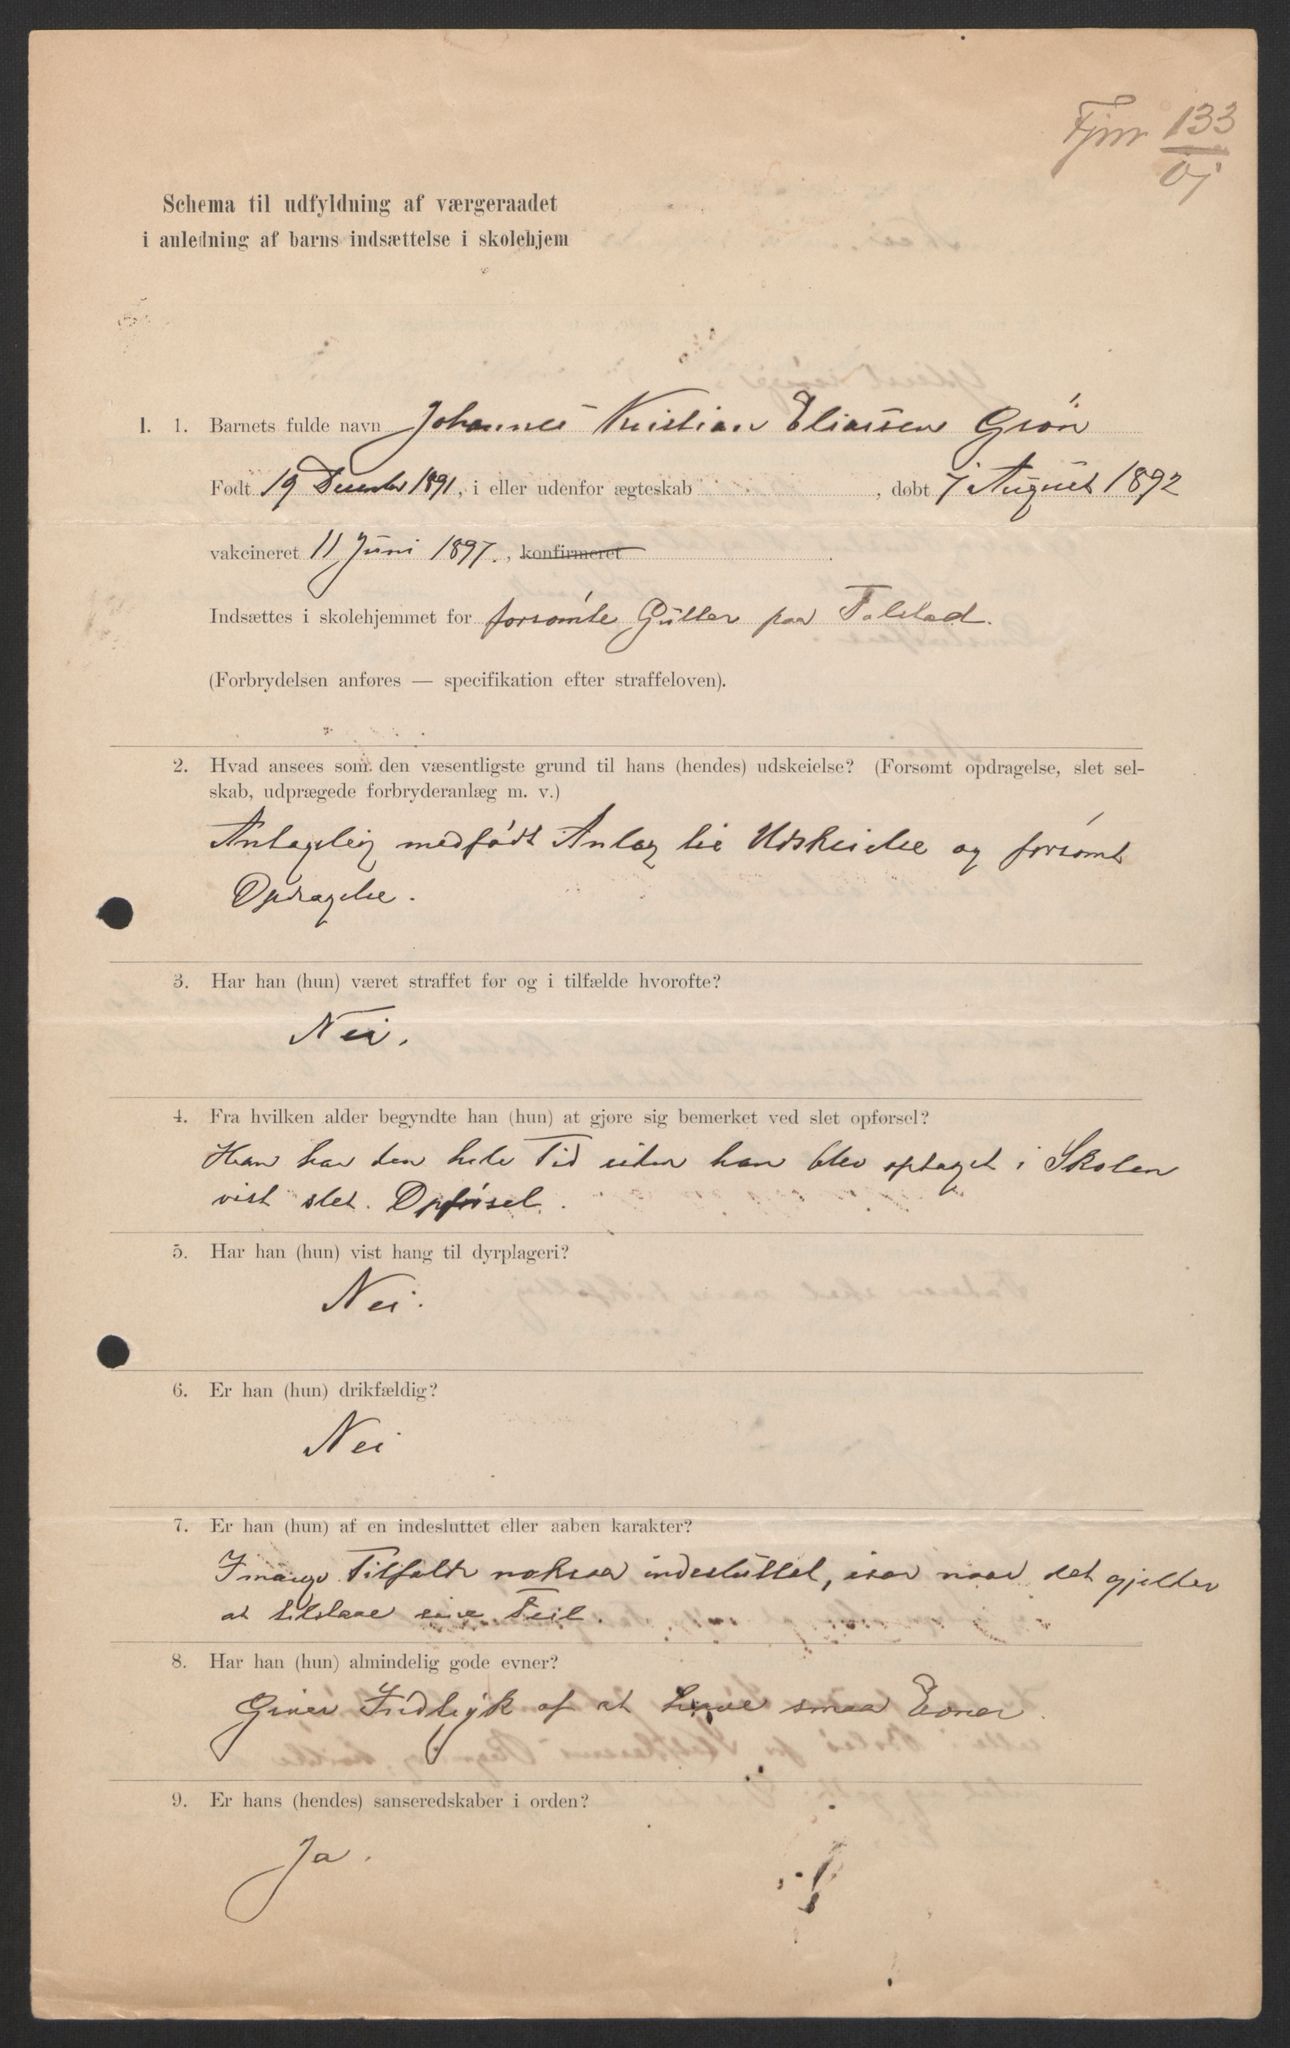 133
Schema til udfyldning af værgeraadet
i anledning af barns indsættelse i skolehjem
I. 1. Barnets fulde navn Johannes Kristian Eliassen Grøn
Født 19 December 1891, i eller udenfor ægteskab , døbt 7 August 1892
vakcineret 11 Juni 1897., konfirmeret
Indsættes i skolehjemmet for forsømte Gutter paa Falstad.
(Forbrydelsen anføres — specifikation efter straffeloven).
2. Hvad ansees som den væsentligste grund til hans (hendes) udskeielse? (Forsømt opdragelse, slet sel-
skab, udprægede forbryderanlæg m. v.)
Antagelig medfødt Anlæg til Udskeielse og forsømt
Opdragelse.
3. Har han (hun) været straffet før og i tilfælde hvorofte?
Nei.
4. Fra hvilken alder begyndte han (hun) at gjøre sig bemerket ved slet opførsel?
Han har den hele Tid siden han blev optaget i Skolen
vist slet Opførsel.
5. Har han (hun) vist hang til dyrplageri?
Nei.
6. Er han (hun) drikfældig?
Nei
7. Er han (hun) af en indesluttet eller aaben karakter?
I mange Tilfælde noksaa indesluttet, især naar det gjelder
at tilstaae sine Feil.
8. Har han (hun) almindelig gode evner?
Giver Indtryk af at have smaa Evner.
9. Er hans (hendes) sanseredskaber i orden?
Ja.